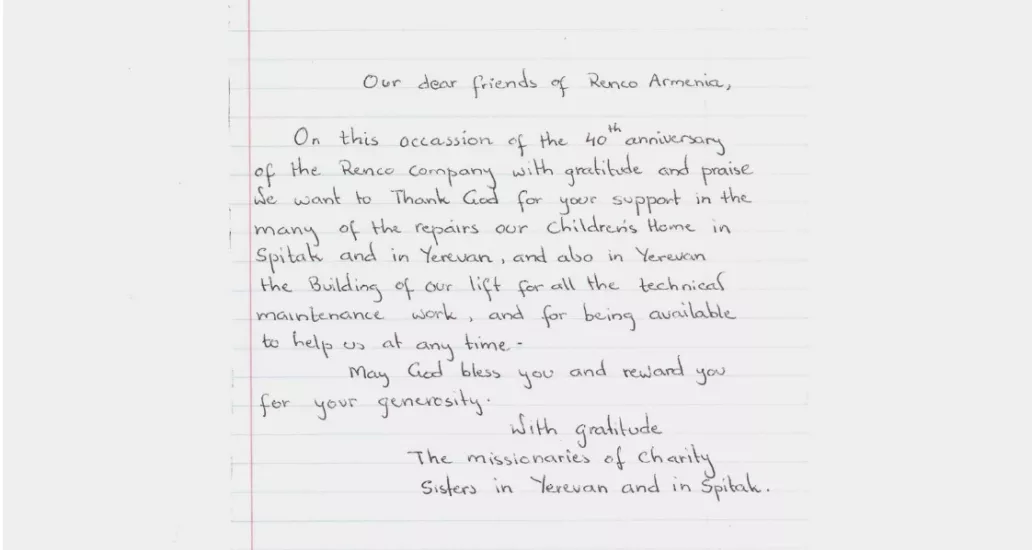 Our dear friends of Renco Armenia,
On this occassion of the 40th anniversary
of the Renco Company with gratitude and praise
We want to Thank God for your support in the
many of the repairs our Children's Home in
Spitak and in Yerevan, and also in Yerevan
the Building of our lift for all the technical
maintenance work, and for being available
to help us at any time-
May God bless you and reward you
for your generosity.
With gratitude
The missionaries of Charity
Sisters in Yerevan and in Spitak.